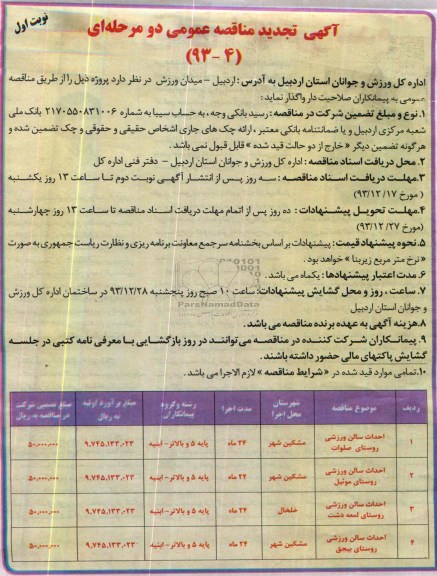 نوبت اول
آگهی تجدید مناقصه عمومی دو مرحله‌ای
(۴ -۹۳)
اداره کل ورزش و جوانان استان اردبیل به آدرس : اردبیل – میدان ورزش در نظر دارد پروژه ذیل را از طریق مناقصه
عمومی به پیمانکاران صلاحیت دار واگذار نماید :
۱. نوع و مبلغ تضمین شرکت در مناقصه : رسید بانکی وجه ، به حساب سیبا به شماره ۲۱۷۰۵۵۰۸۳۱۰۰۶ بانک ملی
شعبه مرکزی اردبیل و یا ضمانتنامه بانکی معتبر ، ارائه چک های جاری اشخاص حقیقی و حقوقی و چک تضمین شده و
هرگونه تضمین دیگر « خارج از دو حالت قید شده » قابل قبول نمی باشد .
۲. محل دریافت اسناد مناقصه : اداره کل ورزش و جوانان استان اردبیل – دفتر فنی اداره کل
۳.مهلت دریافت اسناد مناقصه : سه روز پس از انتشار آگهی نوبت دوم تا ساعت ۱۳ روز یکشنبه
( مورخ ۹۳/۱۲/۱۷ )
۴.مهلت تحویل پیشنهادات : ده روز پس از اتمام مهلت دریافت اسناد مناقصه تا ساعت ۱۳ روز چهارشنبه
(مورخ ۹۳/۱۲/۲۷)
۵.نحوه پیشنهاد قیمت : پیشنهادات بر اساس بخشنامه سرجمع معاونت برنامه ریزی و نظارت ریاست جمهوری به صورت
« نرخ متر مربع زیربنا » خواهد بود .
۶. مدت اعتبار پیشنهادها : یکماه می باشد .
۷. ساعت ، روز و محل گشایش پیشنهادات: ساعت ۱۰ صبح روز پنجشنبه ۹۳/۱۲/۲۸ در ساختمان اداره کل ورزش
و جوانان استان اردبیل
۸.هزینه آگهی به عهده برنده مناقصه می باشد .
۹. پیمانکاران شرکت کننده در مناقصه می‌توانند در روز بازگشایی با معرفی نامه کتبی در جلسه
گشایش پاکتهای مالی حضور داشته باشند.
۱۰.تمامی موارد قید شده در « شرایط مناقصه » لازم الاجرا می باشد .
ParsNamadData
ردیف موضوع مناقصه شهرستان محل اجرا مدت اجرا رشته وگروه پیمانکاران مبلغ برآورد اولیه به ریال مبلغ تضمین شرکت در مناقصه به ریال
۱ احداث سالن ورزشی روستای صلوات مشگین شهر ۲۴ ماه پایه ۵ و بالاتر– ابنیه ۹.۷۴۵.۱۳۳.۰۲۳ ۵۰۰.۰۰۰.۰۰۰
۲ احداث سالن ورزشی روستای موئیل مشگین شهر ۲۴ ماه پایه ۵ و بالاتر– ابنیه ۹.۷۴۵.۱۳۳.۰۲۳
۳ احداث سالن ورزشی روستای لمعه دشت خلخال ۲۴ ماه پایه ۵ و بالاتر– ابنیه ۹.۷۴۵.۱۳۳.۰۲۳
۴ احداث سالن ورزشی روستای بیجق مشگین شهر ۲۴ ماه پایه ۵ و بالاتر– ابنیه ۹.۷۴۵.۱۳۳.۰۲۳